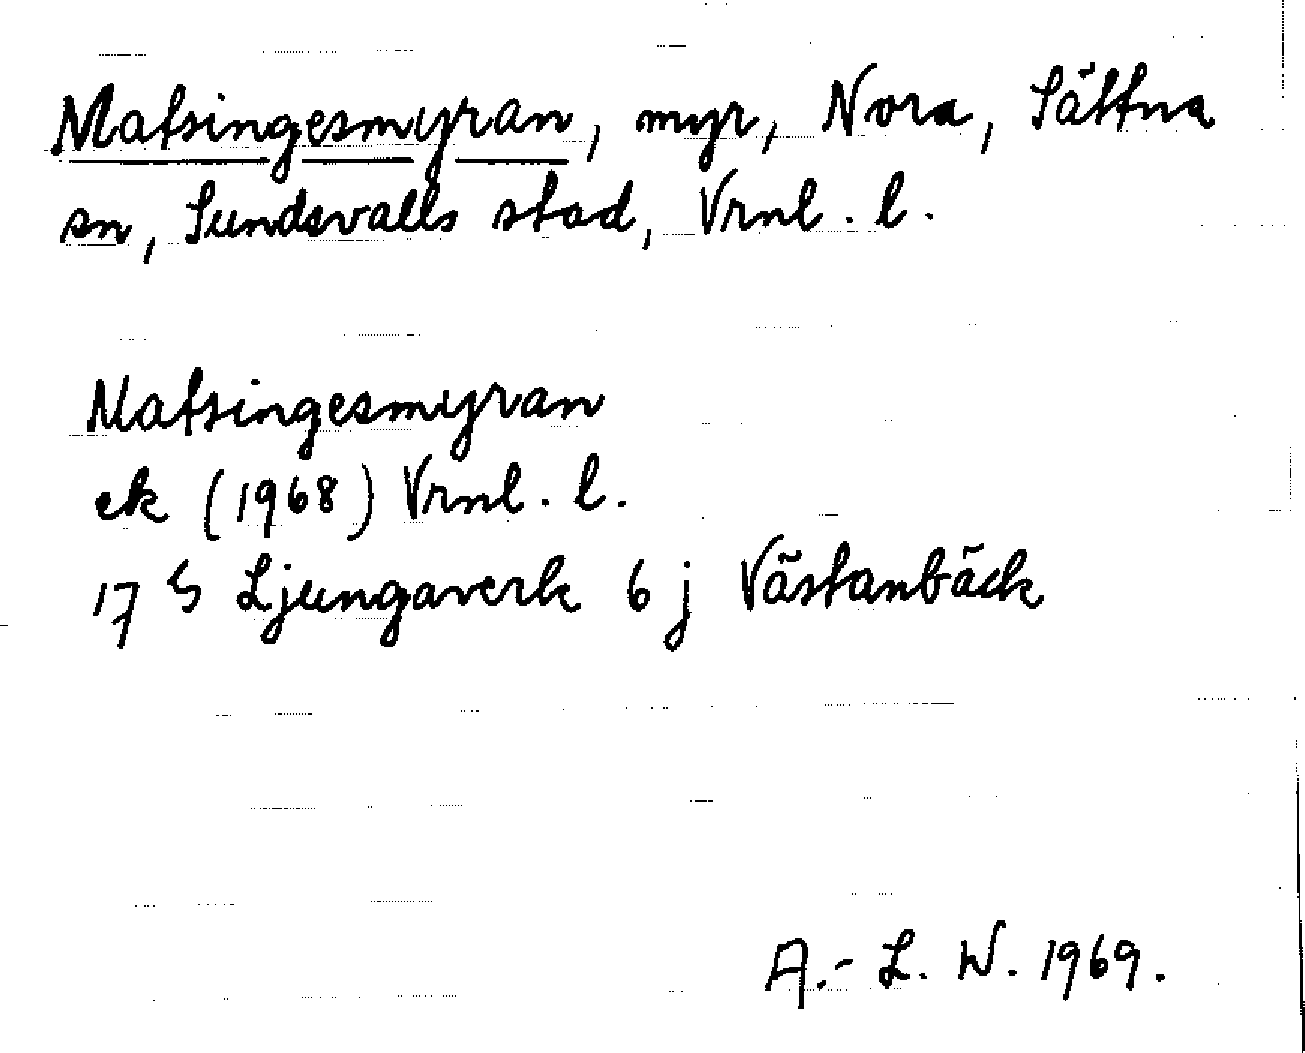 Matsingesmyran, myr, Nora, Sättna
sn, Sundsvalls stad, Vrnl. l.
Matsingesmyran
ek (1968) Vrnl. l.
17 S Ljungaverk 6 j Västanbäck
A.-L. W. 1969.